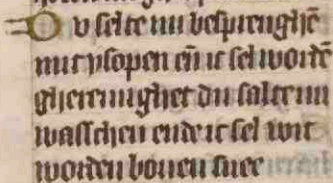 Du selte mi besprengħē
mit ysopen eñ ic sel wordē
ghereinighet du saltē mi
wasschen ende ic sel wit
worden bouen snee